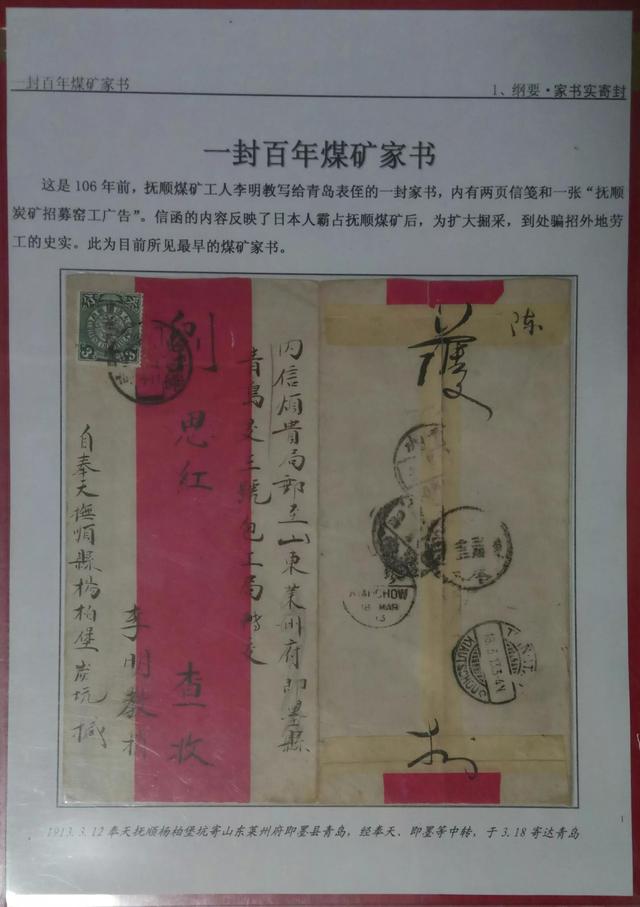 一封百年煤矿家书
1、纲要·家书实寄封
一封百年煤矿家书
这是 106 年前，抚顺煤矿工人李明教写给青岛表侄的一封家书，内有两页信笺和一张“抚顺
炭矿招募窑工广告”。信函的内容反映了日本人霸占抚顺煤矿后，为扩大掘采，到处骗招外地劳
工的史实。此为目前所见最早的煤矿家书。
内信煩貴局郵至山東莱州府即墨縣
青島交三號包工局轉交
劉思红 查收
李明教
自奉天撫順縣楊柏堡炭坑缄
護
陈
封
KIAUCHOW
18 MAR
13
KIAUTSCHOU
18.3.13
1913.3.12 奉天抚顺杨柏堡坑寄山东莱州府即墨县青岛，经奉天、即墨等中转，于 3.18 寄达青岛
1